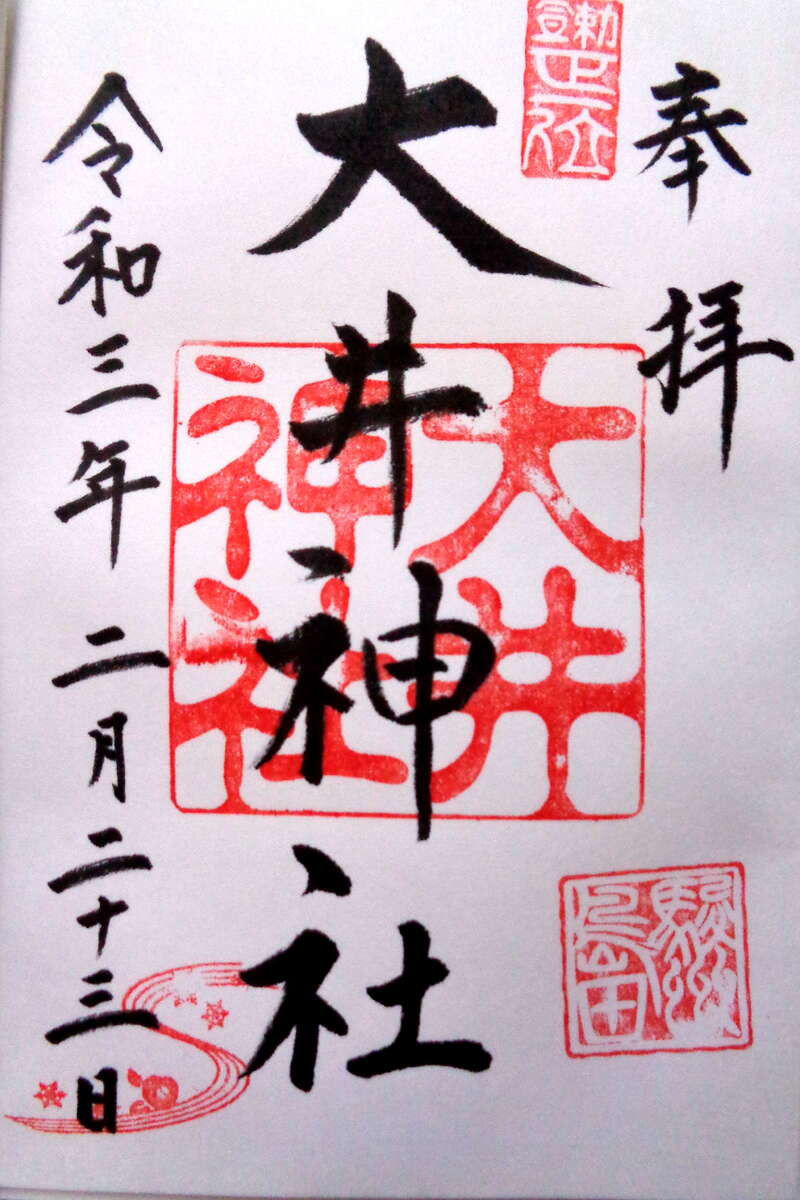 奉拝
勅宣
正一位
大井神社
大井
神社
駿州
島田
令和三年二月二十三日